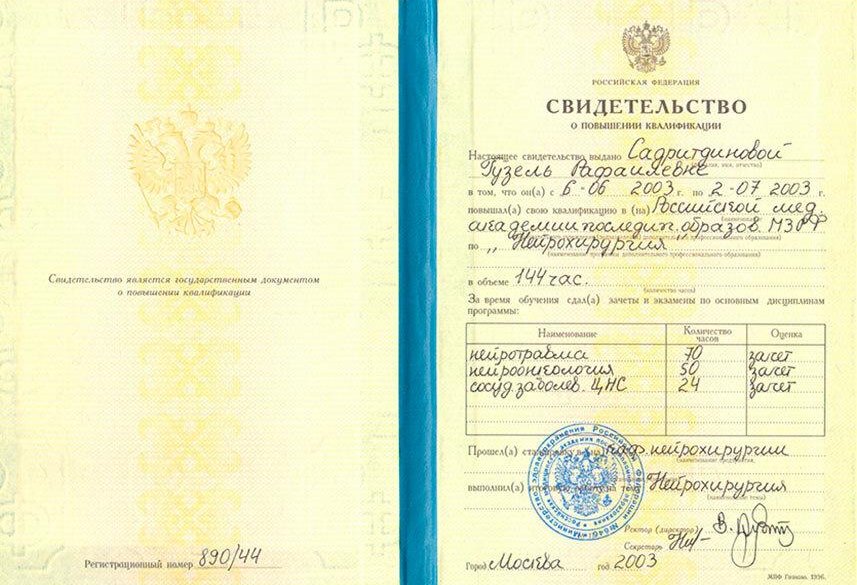 Свидетельство является государственным документом
о повышении квалификации
Регистрационный номер 890/44
РОССИЙСКАЯ ФЕДЕРАЦИЯ
СВИДЕТЕЛЬСТВО
О ПОВЫШЕНИИ КВАЛИФИКАЦИИ
Настоящее свидетельство выдано Садритдиновой
(фамилия, имя, отчество)
Гузель Рафаилевне
в том, что он(а) с 6-06 2003 г. по 2-07 2003 г.
повышал(а) свою квалификацию в (на) Российской мед.
(наименование)
академии последип. образов. МЗ РФ
по „Нейрохирургия"
(наименование программы дополнительного профессионального образования)
в объеме 144 час.
(количество часов)
За время обучения сдал(а) зачеты и экзамены по основным дисциплинам
программы:
Наименование Количество часов Оценка
нейротравма 70 зачет
нейроонкология 50 зачет
сосуд. заболев. ЦНС 24 зачет
Прошел(а) стажировку в (на) каф. нейрохирургии
(наименование предприятия,
выполнил(а) итоговую работу на тему Нейрохирургия
(наименование темы)
Ректор (директор)
Секретарь
Город Москва год 2003
МПФ Гознака. 1996.